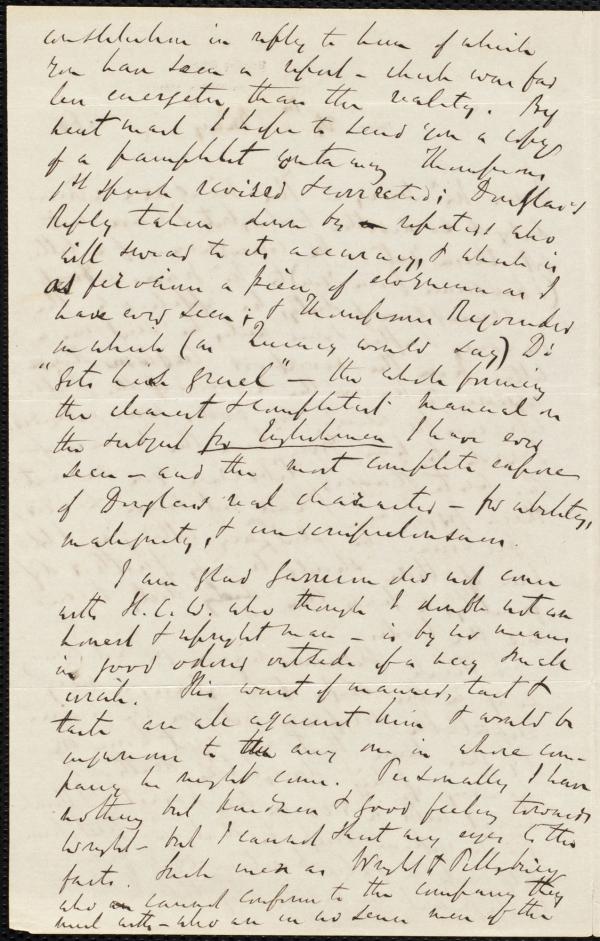 constitution in reply to him of which
you have seen a report - which was far
less energetic than the reality. By
next mail I hope to send you a copy
of a pamphlet containing Thompson's
1st speech revised & corrected; Douglass's
Reply taken down by reporters who
will swear to its accuracy, & which is
as ferocious a piece of eloquence as I
have ever seen; & Thompson's Rejoinder
in which (as Quincy would say) D.
"gets his gruel" - the whole forming
the clearest & completest manual on
the subject for Englishmen I have ever
seen - and the most complete exposé
of Douglass' real character - for ability,
malignity, & unscrupulousness.
I am glad Garrison did not come
with H.C.W. who though I doubt not an
honest & upright man - is by no means
in good odour outside of a very small
circle. His want of manners, tact &
taste are all against him & would be
injurious to any one in whose com-
pany he might come. Personally I have
nothing but kindness & good feeling towards
Wright - but I cannot shut my eyes to the
facts. Such men as Wright & Pillsbury
who cannot conform to the company they
meet with - who are in no sense men of the